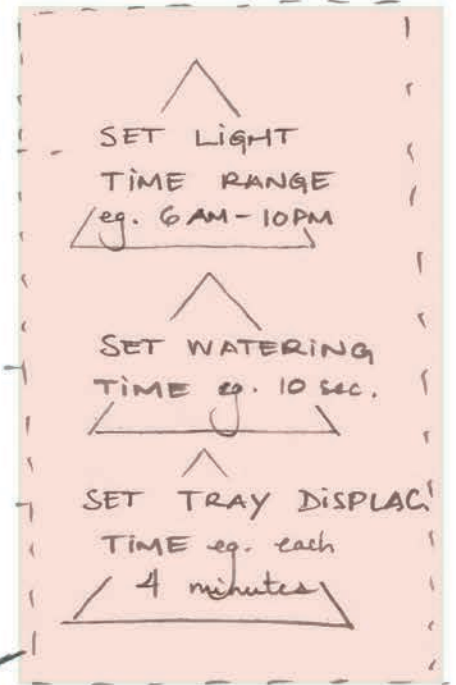 SET LIGHT
TIME RANGE
eg. 6 AM - 10 PM
SET WATERING
TIME eg. 10 sec.
SET TRAY DISPLAC
TIME eg. each
4 minutes